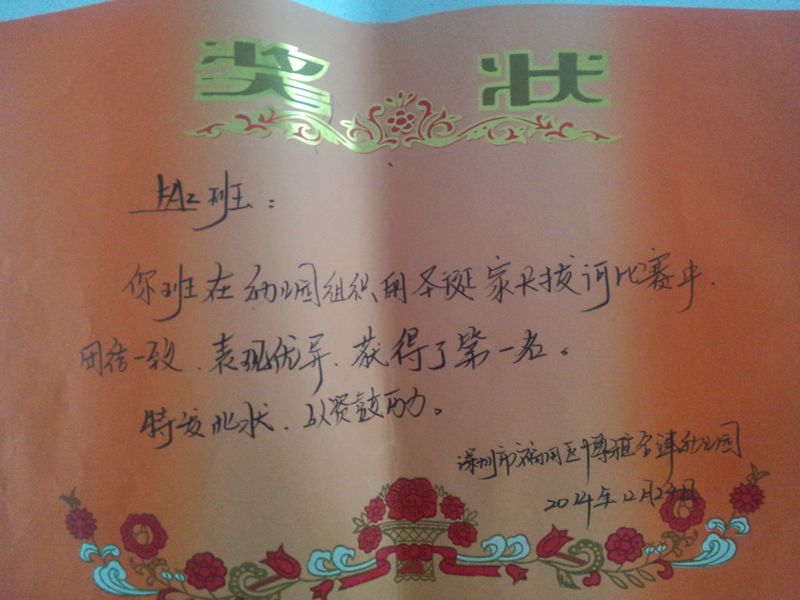 奖状
班：
你班在幼儿园组织的圣诞家长拔河比赛中，
团结一致、表现优异，获得了第一名。
特发此状，以资鼓励。
深圳市福田区博雅幼儿园
2014年12月24日